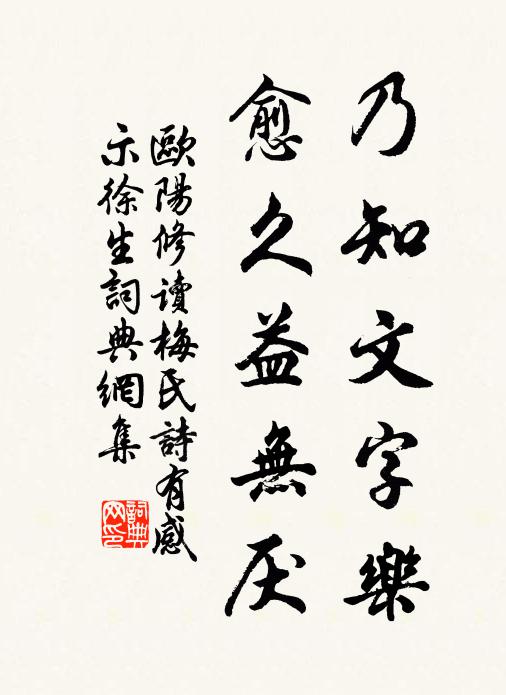 乃知文字樂
愈久益無厌
歐陽修读梅氏詩有感
示徐生詞典網集
詞典网印